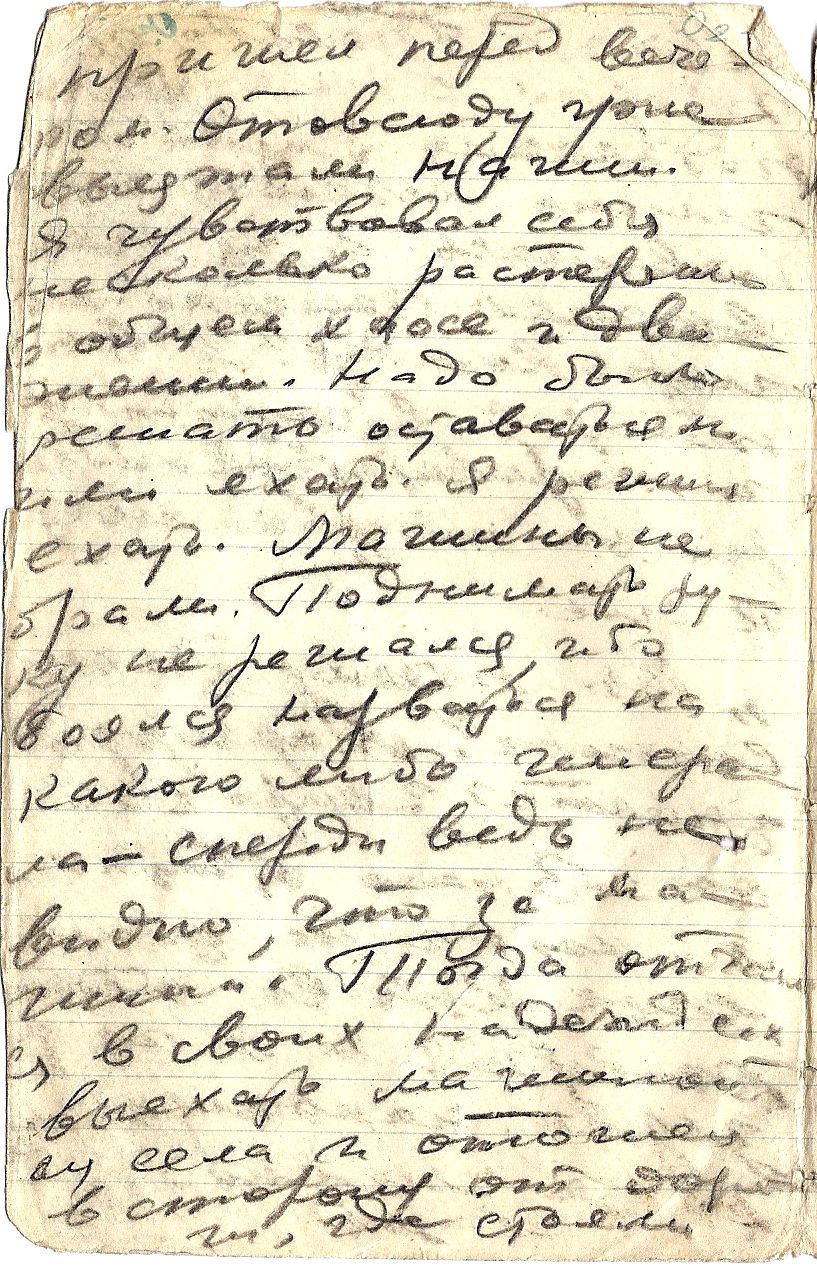 пришел перед вече-
ром. Отовсюду уже
выезжали наши.
Я чувствовал себя
несколько растеряно
в общем хаосе и дви-
жении. Надо было
решать оставаться
или ехать. Я решил
ехать. Машины не
брали. Поднимать ру-
ку не решался, ибо
боялся нарваться на
какого либо генера-
ла – спереди ведь не
видно, что за ма-
шина. Тогда отчаял
ся в своих надеждах
выехать машиной
из села и отошел
в сторону от доро-
ги, где стояли